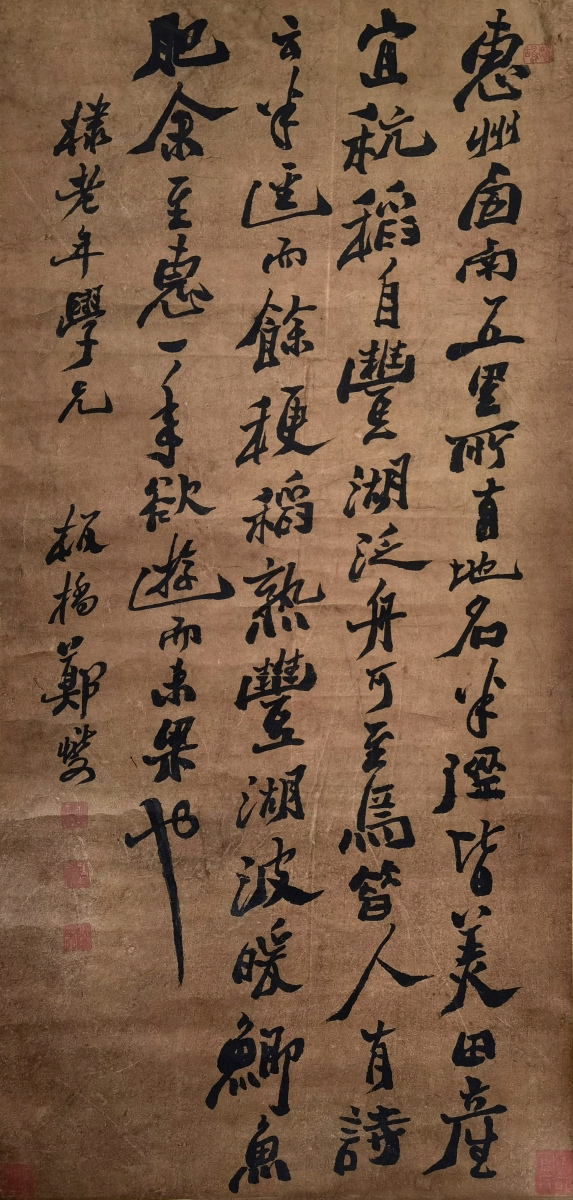 惠州西南五里所有地名半徑皆美田產
宜秔稻自豐湖泛舟可至焉昔人有詩
云半逕而餘稉稻熟豐湖波暖鯽魚
肥余至惠一年欲遊而未果也
老年學兄 板橋鄭燮